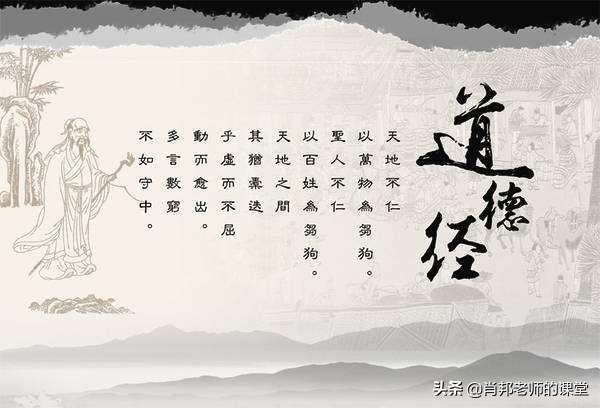 道德经
天地不仁
以萬物為芻狗。
聖人不仁
以百姓為芻狗。
天地之間
其猶橐迭
乎虛而不屈
動而愈出。
多言數窮
不如守中。
头条 @肖邦老师的课堂